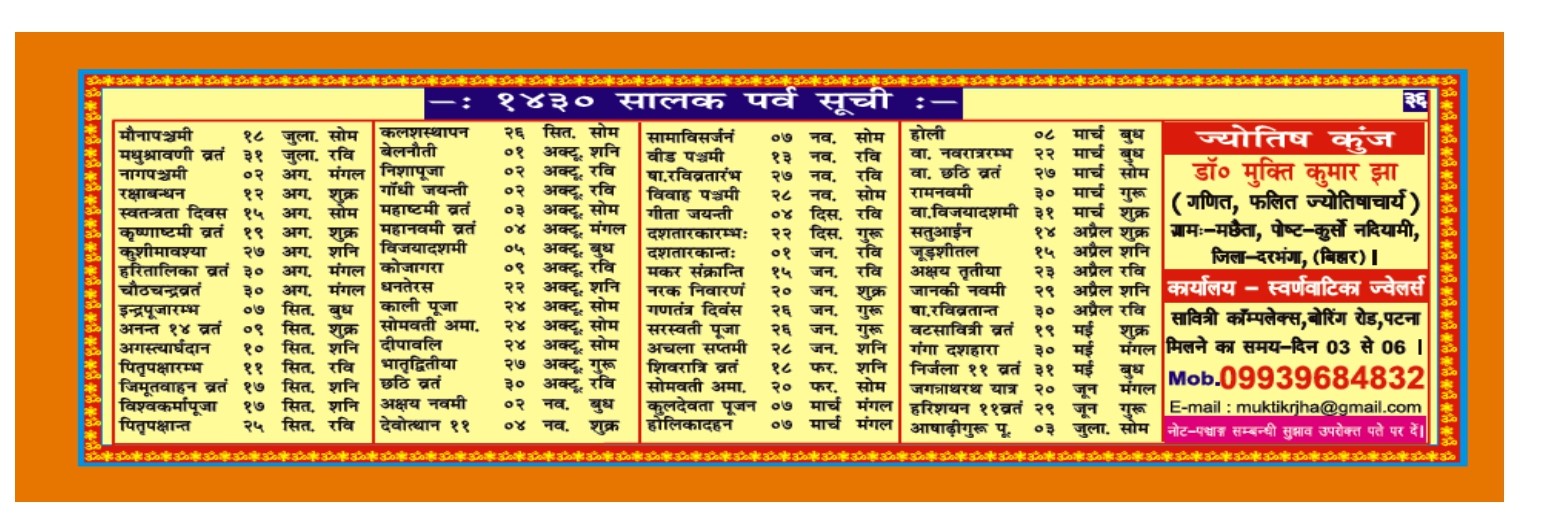 –: १४३० सालक पर्व सूची :–
३६
मौनापञ्चमी १८ जुला. सोम
मधुश्रावणी व्रतं ३१ जुला. रवि
नागपञ्चमी ०२ अग. मंगल
रक्षाबन्धन १२ अग. शुक्र
स्वतन्त्रता दिवस १५ अग. सोम
कृष्णाष्टमी व्रतं १९ अग. शुक्र
कुशीमावश्या २७ अग. शनि
हरितालिका व्रतं ३० अग. मंगल
चौठचन्द्रव्रतं ३० अग. मंगल
इन्द्रपूजारम्भ ०७ सित. बुध
अनन्त १४ व्रतं ०९ सित. शुक्र
अगस्त्यार्घदान १० सित. शनि
पितृपक्षारम्भ ११ सित. रवि
जिमूतवाहन व्रतं १७ सित. शनि
विश्वकर्मापूजा १७ सित. शनि
पितृपक्षान्त २५ सित. रवि
कलशस्थापन २६ सित. सोम
बेलनौती ०१ अक्टू. शनि
निशापूजा ०२ अक्टू. रवि
गाँधी जयन्ती ०२ अक्टू. रवि
महाष्टमी व्रतं ०३ अक्टू. सोम
महानवमी व्रतं ०४ अक्टू. मंगल
विजयादशमी ०५ अक्टू. बुध
कोजागरा ०९ अक्टू. रवि
धनतेरस २२ अक्टू. शनि
काली पूजा २४ अक्टू. सोम
सोमवती अमा. २४ अक्टू. सोम
दीपावलि २४ अक्टू. सोम
भातृद्वितीया २७ अक्टू. गुरू
छठि व्रतं ३० अक्टू. रवि
अक्षय नवमी ०२ नव. बुध
देवोत्थान ११ ०४ नव. शुक्र
सामाविसर्जनं ०७ नव. सोम
वीड पञ्चमी १३ नव. रवि
षा.रविव्रतारंभ २७ नव. रवि
विवाह पञ्चमी २८ नव. सोम
गीता जयन्ती ०४ दिस. रवि
दशतारकारम्भः २२ दिस. गुरू
दशतारकान्तः ०१ जन. रवि
मकर संक्रान्ति १५ जन. रवि
नरक निवारणं २० जन. शुक्र
गणतंत्र दिवंस २६ जन. गुरू
सरस्वती पूजा २६ जन. गुरू
अचला सप्तमी २८ जन. शनि
शिवरात्रि व्रतं १८ फर. शनि
सोमवती अमा. २० फर. सोम
कुलदेवता पूजन ०७ मार्च मंगल
होलिकादहन ०७ मार्च मंगल
होली ०८ मार्च बुध
वा. नवरात्ररम्भ २२ मार्च बुध
वा. छठि व्रतं २७ मार्च सोम
रामनवमी ३० मार्च गुरू
वा.विजयादशमी ३१ मार्च शुक्र
सतुआईन १४ अप्रैल शुक्र
जूड़शीतल १५ अप्रैल शनि
अक्षय तृतीया २३ अप्रैल रवि
जानकी नवमी २९ अप्रैल शनि
षा.रविव्रतान्त ३० अप्रैल रवि
वटसावित्री व्रतं १९ मई शुक्र
गंगा दशहारा ३० मई मंगल
निर्जला ११ व्रतं ३१ मई बुध
जगन्नाथरथ यात्र २० जून मंगल
हरिशयन ११व्रतं २९ जून गुरू
आषाढ़ीगुरू पू. ०३ जुला. सोम
ज्योतिष कुंज
डॉ० मुक्ति कुमार झा
( गणित, फलित ज्योतिषाचार्य )
ग्रामः–मछैता, पोष्ट–कुर्सो नदियामी,
जिला–दरभंगा, (बिहार) |
कार्यालय – स्वर्णवाटिका ज्वेलर्स
सावित्री कॉम्पलेक्स,बोरिंग रोड,पटना
मिलने का समय–दिन 03 से 06 |
Mob.09939684832
E-mail : muktikrjha@gmail.com
नोट–पञ्चाङ्ग सम्बन्धी सुझाव उपरोक्त पते पर दें|